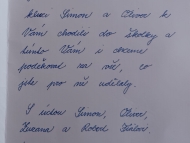 kluci Šimon a Oliver k
Vám chodili do školky a
tímto Vám i chceme
poděkovat za vše, co
jste pro ně udělaly.
S úctou Šimon, Oliver,
Zuzana a Robert